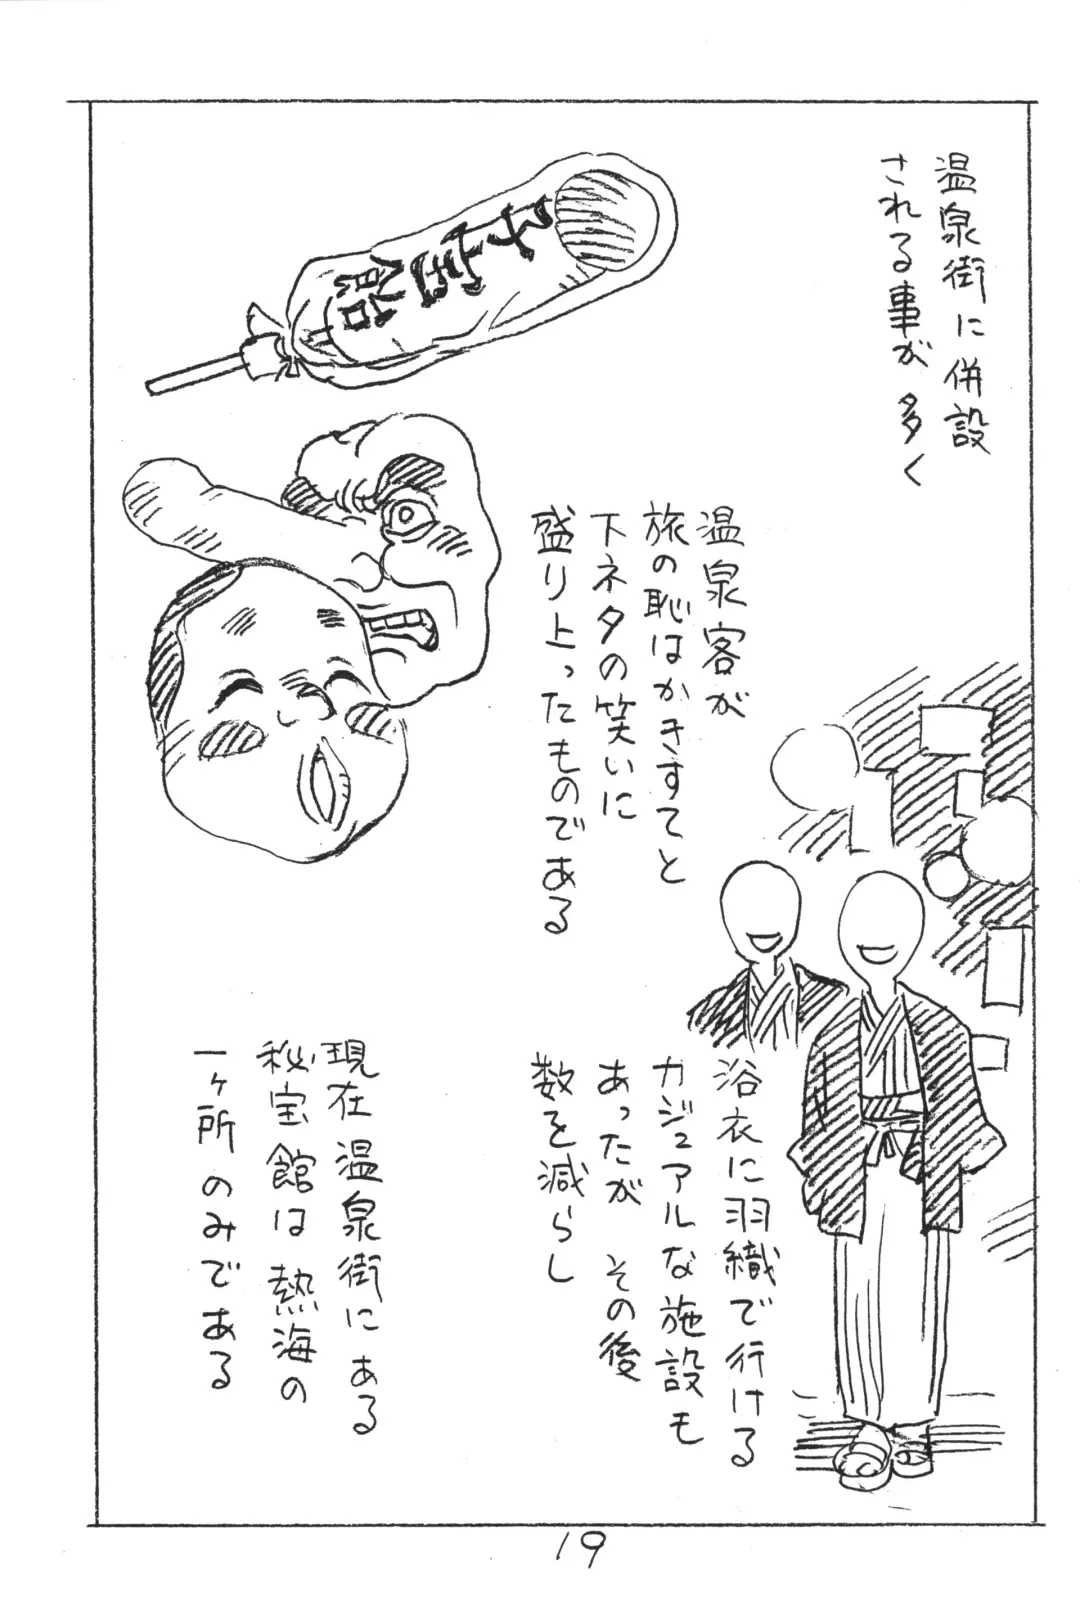 温泉街に併設
される事が多く
温泉客が
旅の恥はかきすてと
下ネタの笑いに
盛り上ったものである
浴衣に羽織で行ける
カジュアルな施設も
あったが その後
数を減らし
現在温泉街にある
秘宝館は熱海の
一ヶ所のみである
19